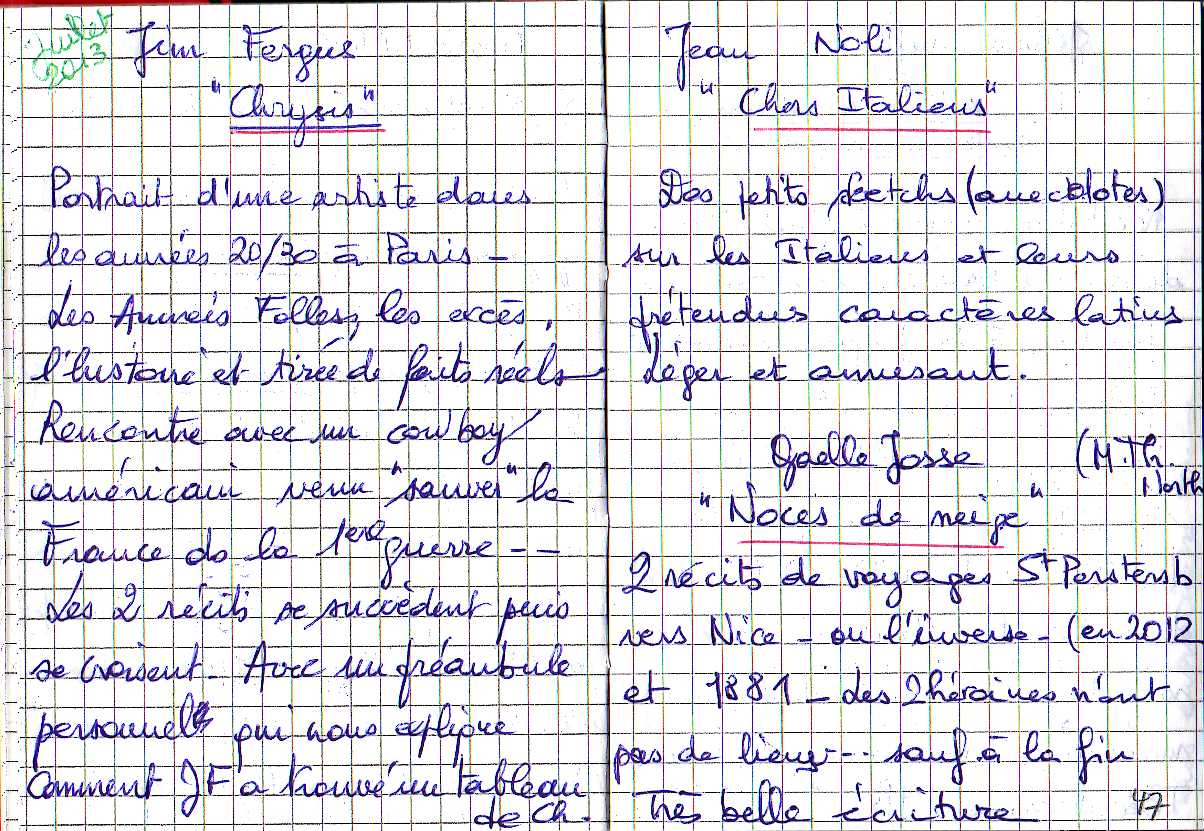 Juillet
2013
Jim Fergus
"Chrysis"
Portrait d'une artiste dans
les années 20/30 à Paris -
Les Années Folles, les excès,
l'histoire et tirée de faits réels
Rencontre avec un cowboy
américain venu "sauver" la
France de la 1ere guerre --
Les 2 récits se succèdent puis
se croisent. Avec un préambule
personnel qui nous explique
Comment JF a trouvé un tableau
de Ch.
Jean Noli
"Chers Italiens"
Des petits sketchs (anecdotes)
sur les Italiens et leurs
prétendus caractères latins
Léger et amusant.
Gaelle Josse (M.Th.
North
"Noces de neige"
2 récits de voyages St Perstersb
vers Nice - ou l'inverse - (en 2012
et 1881 - des 2 héroïnes n'ont
pas de liens -- sauf à la fin
Très belle écriture
47